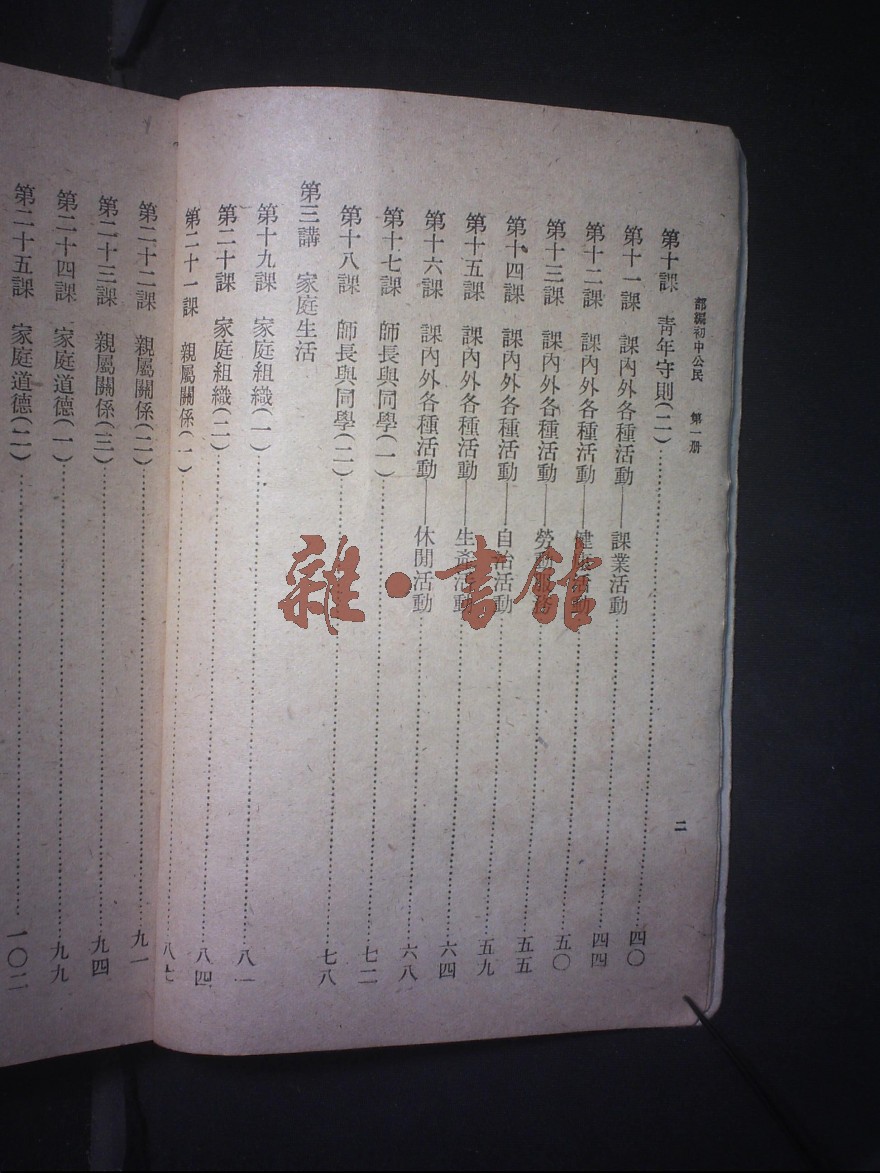 部編初中公民　第一册
二
第十課　青年守則(二)……四〇
第十一課　課內外各種活動——課業活動……四四
第十二課　課內外各種活動——健康活動……五〇
第十三課　課內外各種活動——勞動服務……五五
第十四課　課內外各種活動——自治活動……五九
第十五課　課內外各種活動——生產活動……六四
第十六課　課內外各種活動——休閒活動……六八
第十七課　師長與同學(一)……七二
第十八課　師長與同學(二)……七八
第三講　家庭生活
第十九課　家庭組織(一)……八一
第二十課　家庭組織(二)……八四
第二十一課　親屬關係(一)……八七
第二十二課　親屬關係(二)……九一
第二十三課　親屬關係(三)……九四
第二十四課　家庭道德(一)……九九
第二十五課　家庭道德(二)……一〇二
雜·書館